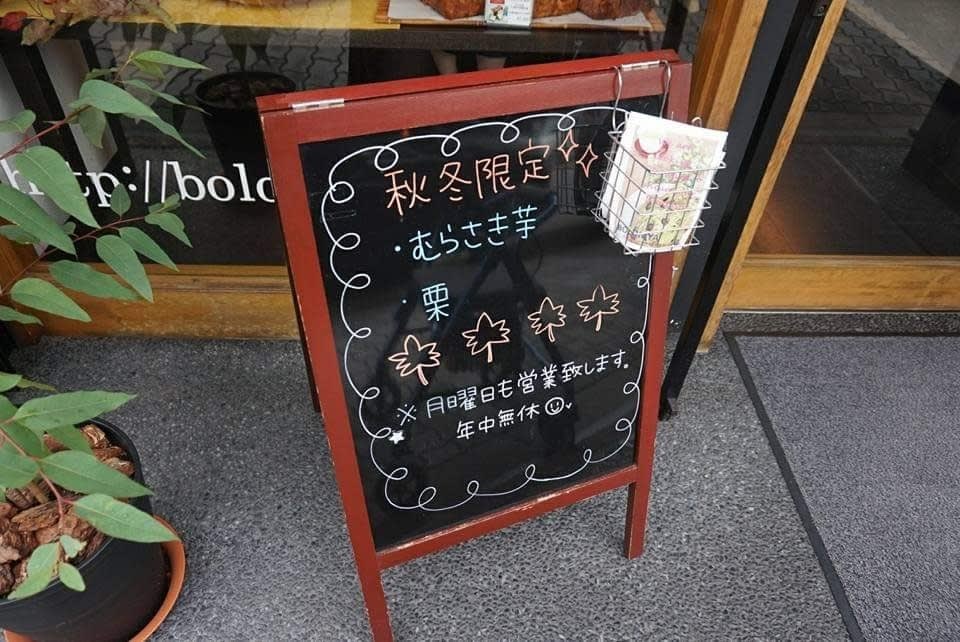 http://bolo
秋冬限定
・むらさき芋
・栗
※月曜日も営業致します。
年中無休